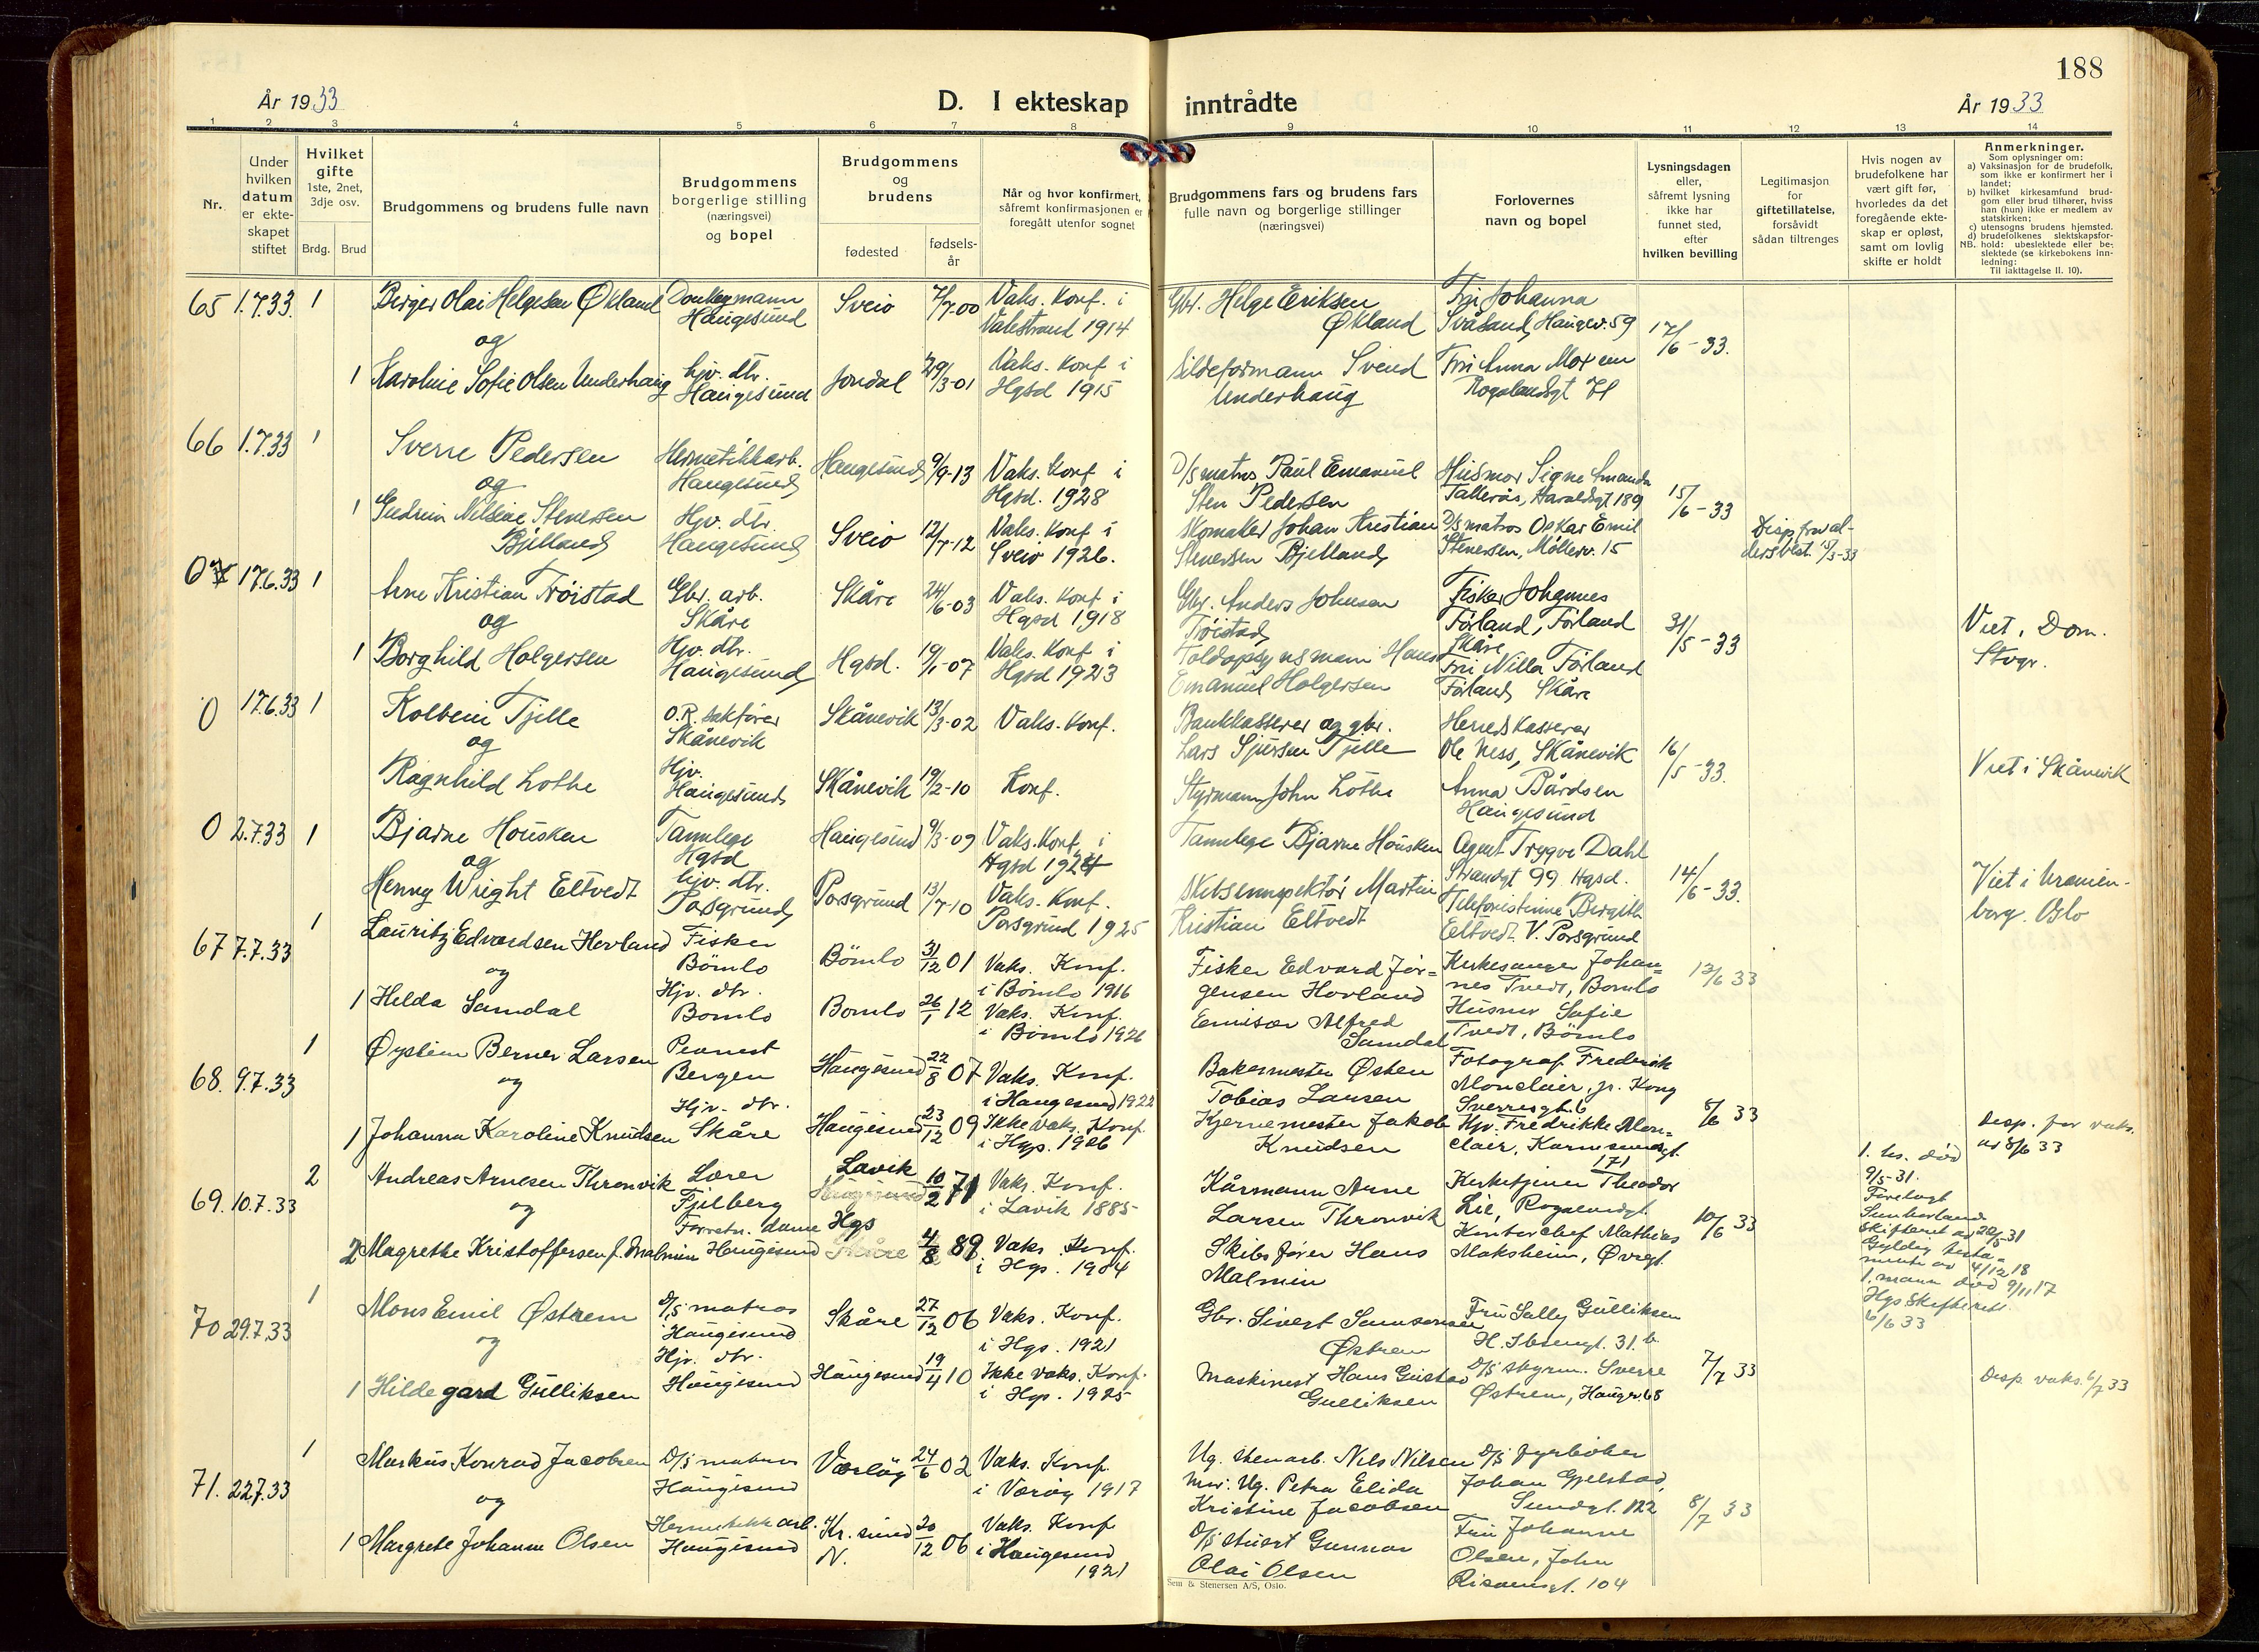 188
År 1933
D. I ekteskap inntrådte
År 1933
1 2 3 4 5 6 7 8 9 10 11 12 13 14
Nr.
Under
hvilken
datum
er ekte-
skapet
stiftet
Hvilket
gifte
1ste, 2net,
3dje osv.
Brdg. Brud
Brudgommens og brudens fulle navn
Brudgommens
borgerlige stilling
(næringsvei)
og bopel
Brudgommens
og
brudens
fødested
fødsels-
år
Når og hvor konfirmert,
såfremt konfirmasjonen er
foregått utenfor sognet
Brudgommens fars og brudens fars
fulle navn og borgerlige stillinger
(næringsvei)
Forlovernes
navn og bopel
Lysningsdagen
eller,
såfremt lysning
ikke har
funnet sted,
efter
hvilken bevilling
Legitimasjon
for
giftetillatelse,
forsåvidt
sådan tiltrenges
Hvis nogen av
brudefolkene har
vært gift før,
hvorledes da det
foregående ekte-
skap er opløst,
samt om lovlig
skifte er holdt
Anmerkninger.
Som oplysninger om:
a) Vaksinasjon for de brudefolk,
som ikke er konfirmert her i
landet;
b) hvilket kirkesamfund brud-
gom eller brud tilhører, hviss
han (hun) ikke er medlem av
statskirken;
c) utensogns brudens hjemsted.
d) brudefolkenes slektskapsfor-
NB. hold: ubeslektede eller be-
slektede (se kirkebokens inn-
ledning:
Til iakttagelse II. 10).
65 1.7.33. 1 Birger Olai Helgesen Økland
og
Donkeymann
Haugesund
Sveio 7/7-00
Vaks. Konf. i
Valestrand 1914
Gbr. Helge Eriksen
Økland
Fru Johanna
Svåsand, Haugev. 59
17/6-33.
1 Karoline Sofie Olsen Underhaug
hjv. dtr.
Haugesund
Jondal 29/3-01
Vaks. Konf i
Hgsd 1915
Sildeformann Svend
Underhaug
Fru Anna Moxeun
Rogalandsgt 71
66 1.7.33 1 Sverre Pedersen
og
Hermetikkarb.
Haugesund
Haugesund 9/9-13
Vaks. Konf i
Hgsd. 1928
D/s matros Paul Emanuel
Sten Pedersen
Husmor Signe Amanda
Tallerås, Haraldsgt 189
15/6-33
1 Gudrun Nelsine Stenersen
Bjelland
Hjv. dtr.
Haugesund
Sveio 12/7-12
Vaks. Konf i
Sveio 1926.
Skomaker Johan Kristian
Stenersen Bjelland
D/s matros Oskar Emil
Stenersen, Møllerv. 15
Disp fra al-
dersbest. 15/3-33
0 17.6.33 1 Arne Kristian Frøistad
og
Gbr. arb.
Skåre
Skåre 24/6-03
Vaks. Konf i
Hgsd 1918
Gbr. Anders Johnsen
Frøistad
Fisker Johannes
Førland, Førland
Skåre
31/5-33
Viet i Dom.
Stvgr.
1 Borghild Holgersen
Hjv. dtr.
Haugesund
Hgsd. 19/1-07
Vaks. Konf i
Hgsd 1923
Toldopsynsmann Hans
Emanuel Holgersen
Fru Nilla Førland
Førland Skåre
0 17.6.33 1 Kolbein Tjelle
og
O.R. sakfører
Skånevik
Skånevik 13/3-02
Vaks. Konf.
Bankkasserer og gbr.
Lars Sjursen Tjelle
Herredskasserer
Ole Ness, Skånevik
16/5-33.
Viet i Skånevik
Ragnhild Lothe
Hjv.
Haugesund
Skånevik 19/2-10
Konf.
Styrmann John Lothe
Anna Bårdsen
Haugesund
0 2.7.33 1 Bjarne Housken
og
Tannlege
Hgsd
Haugesund 9/3-09
Vaks. Konf. i
Hgsd 1924
Tannlege Bjarne Housken
Agent Trygve Dahl
Strandgt 99 Hgsd.
14/6-33.
Viet i Uranien-
borg. Oslo
1 Henny Wright Eltvedt
hjv. dtr.
Porsgrund
Porsgrund 13/7-10
Vaks. Konf.
Porsgrund 1925
Skibsinnspektør Martin
Kristian Eltvedt
Telefonistinne Bergith
Eltvedt. V. Porsgrund
67 7.7.33 Lauritz Edvardsen Hovland
og
Fisker
Bömlo
Bömlo 31/12 01
Vaks. Konf.
i Bömlo 1916
Fisker Edvard Jør-
gensen Hovland
Kirkesanger Johan-
nes Tvedt, Bomlo
12/6 33
1 Helda Samdal
Hjv. dtr.
Bomlo
Bomlo 26/1 12
Vaks. Konf.
i Bömlo 1926
Emisær Alfred
Samdal
Husmor Sofie
Tvedt, Bömlo
68. 9.7.33 1 Øystein Berner Larsen
og
Peanist
Bergen
Haugesund 22/8 07
Vaks. Konf.
i Haugesund 1922
Bakermester Østen
Tobias Larsen
Fotograf Frederik
Monclair, jr. Kong
Sverresgt. 6
8/6 33
1 Johanna Karoline Knudsen
Hjv. dtr.
Skåre
Haugesund 23/12 09
Ikke vaks. Konf.
i Hgs. 1926
Kjernemester Jakob
Knudsen
Hjv. Fredrikke Mon-
clair, Karmsundgt.
171
Desp. for vaks.
av 8/6 33
69. 10.7.33 2 Andreas Arnesen Thronvik
og
Lærer
Fjelberg
Lavik
10/2 71
Vaks. Konf.
i Lavik 1885
Kårmann Arne
Larsen Thronvik
Kirketjener Theodor
Lie, Rogalandsgt.
10/6 33
1. hs. död
9/5-31.
Foretagt
Sunhorland
skifterett av 20/5-31
Gyldig testa-
mente av 4/12 18
1. mann död 9/11 17
Hgs Skifterett
6/6 33
2 Magrethe Kristoffersen f. Malmin
Forretn. dame
Haugesund
Hgs
Skåre 4/8 89
Vaks. Konf.
i Hgs. 1904
Skibsfører Hans
Malmin
Kontorchef Mathias
Maksheim, Øvregt.
70 29.7.33 1 Mons Emil Østrem
og
D/s matros
i Haugesund
Skåre 27/12 06
Vaks. Konf.
i Hgs. 1921
Gbr. Sivert Samsonsen
Østrem
Fru Sally Gulliksen
H. Ibsensgt. 31 b.
7/7 33
1 Hildegard Gulliksen
Hjv. dtr.
Haugesund
Haugesund 19/4 10
Ikke vaks. Konf.
i Hgs. 1925
Maskinist Hans Gustav
Gulliksen
D/s styrm. Sverre
Østrem, Haugev. 68
Desp. vaks. 6/7 33
71. 22.7.33 1 Markus Konrad Jacobsen
og
D/s matros
Haugesund
Værøy 24/6 02
Vaks. Konf.
i Værøy 1917
Ug. stenarb. Nils Nilsen
mor: Ug. Petra Elida
Kristine Jacobsen
D/s fyrbøter
Johan Gjelstad,
Sundgt. 122
8/7 33
1 Margrete Johanne Olsen
Hermetikk arb.
Haugesund
Kr. sund
N. 20/12 06
Vaks. Konf
i Haugesund
1921
D/s stuert Gunnar
Olai Olsen
Fru Johanne
Olsen, John
Risøensgt. 104
Sem & Stenersen A/S, Oslo.